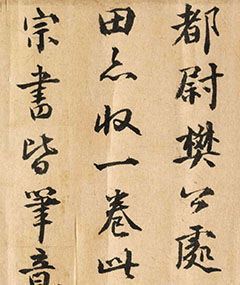 都尉樊公處
田亦收一卷此
宗書皆筆意